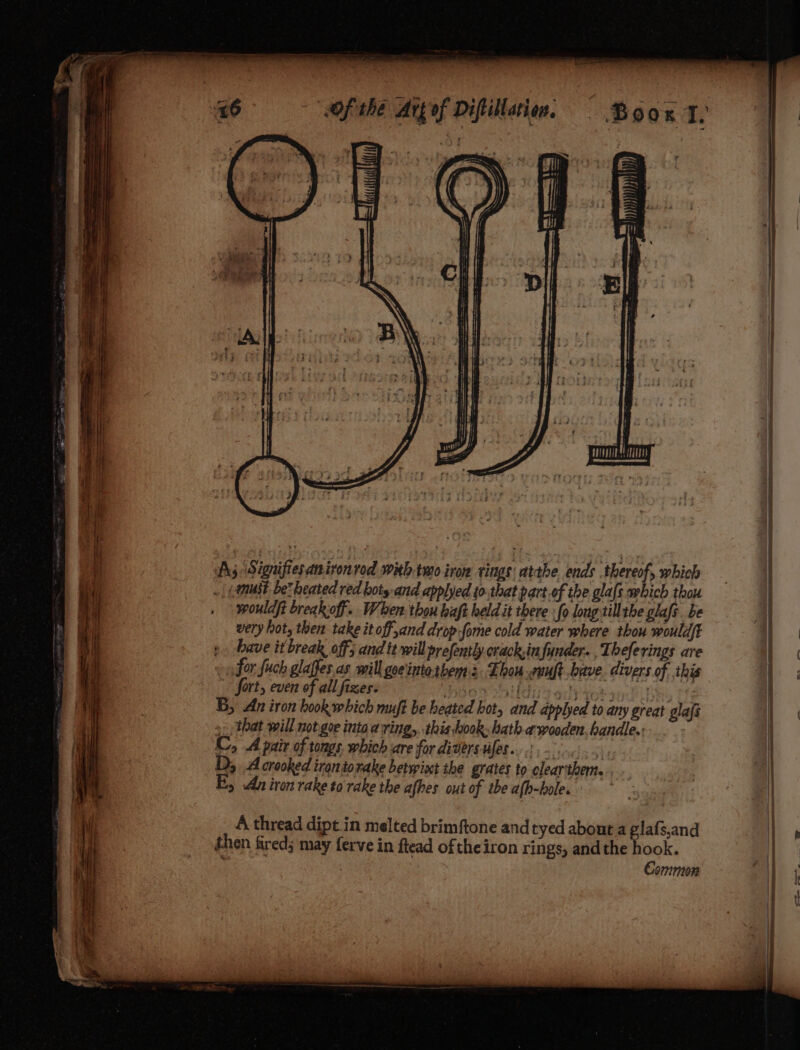 26 Of the Art of Diſtillation. BOOK I.
A
B
C
D
E
A, Signifies an iron rod with two iron rings at the ends thereof, which
must be heated red hot, and applyed to that part of the glaſs which thou
wouldſt break off. When thou haſt held it there ſo long till the glaſs be
very hot, then take it off, and drop ſome cold water where thou wouldſt
have it break off, and it will preſently crack in ſunder. Theſe rings are
for ſuch glaſſes as will goe into them: Thou muſt have divers of this
ſort, even of all ſizes.
B, An iron hook which muſt be heated hot, and applyed to any great glaſs
that will not goe into a ring, this hook hath a wooden handle.
C, A pair of tongs which are for divers uſes.
D, A crooked iron to rake betwixt the grates to clear them.
E, An iron rake to rake the aſhes out of the aſh-hole.
A thread dipt in melted brimſtone and tyed about a glaſs, and
then fired; may ſerve in ſtead of the iron rings, and the hook.
Common